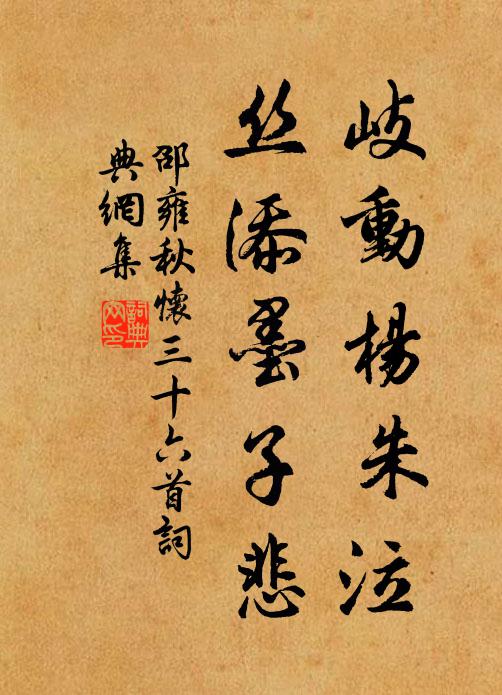 岐動楊朱泣
丝添墨子悲
邵雍秋懷三十六首詞
典網集
詞典
网印